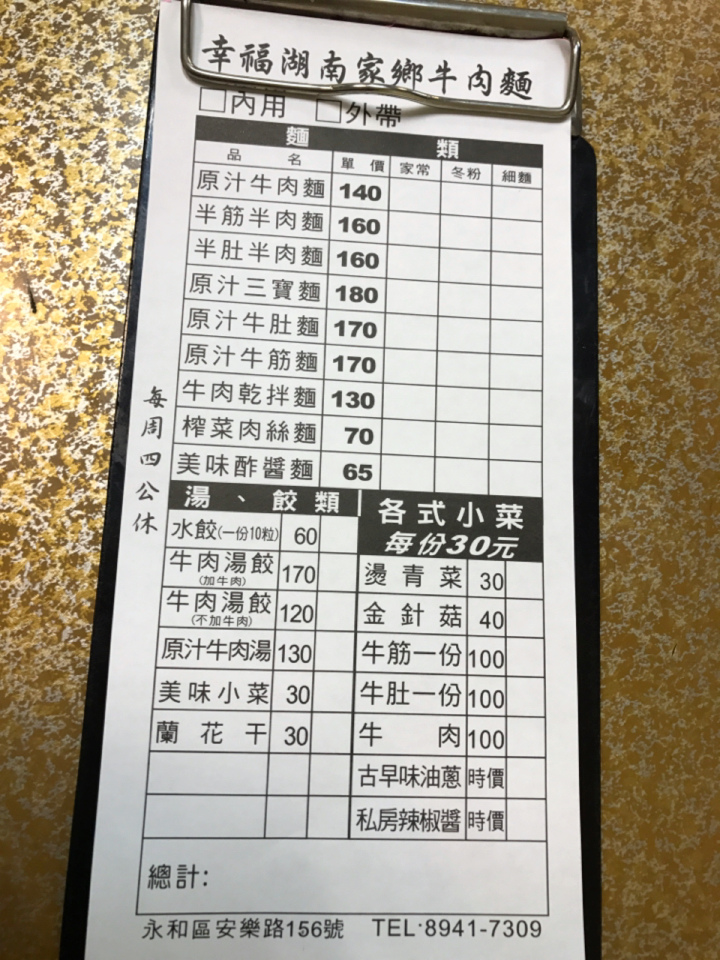 幸福湖南家鄉牛肉麵
□內用 □外帶
麵 類
品 名 單 價 家常 冬粉 細麵
原汁牛肉麵 140
半筋半肉麵 160
半肚半肉麵 160
原汁三寶麵 180
原汁牛肚麵 170
原汁牛筋麵 170
牛肉乾拌麵 130
榨菜肉絲麵 70
美味酢醬麵 65
每周四公休
湯、餃類
水餃(一份10粒) 60
牛肉湯餃 170
(加牛肉)
牛肉湯餃 120
(不加牛肉)
原汁牛肉湯 130
美味小菜 30
蘭花干 30
各式小菜
每份30元
燙青菜 30
金針菇 40
牛筋一份 100
牛肚一份 100
牛肉 100
古早味油蔥 時價
私房辣椒醬 時價
總計:
永和區安樂路156號 TEL·8941-7309